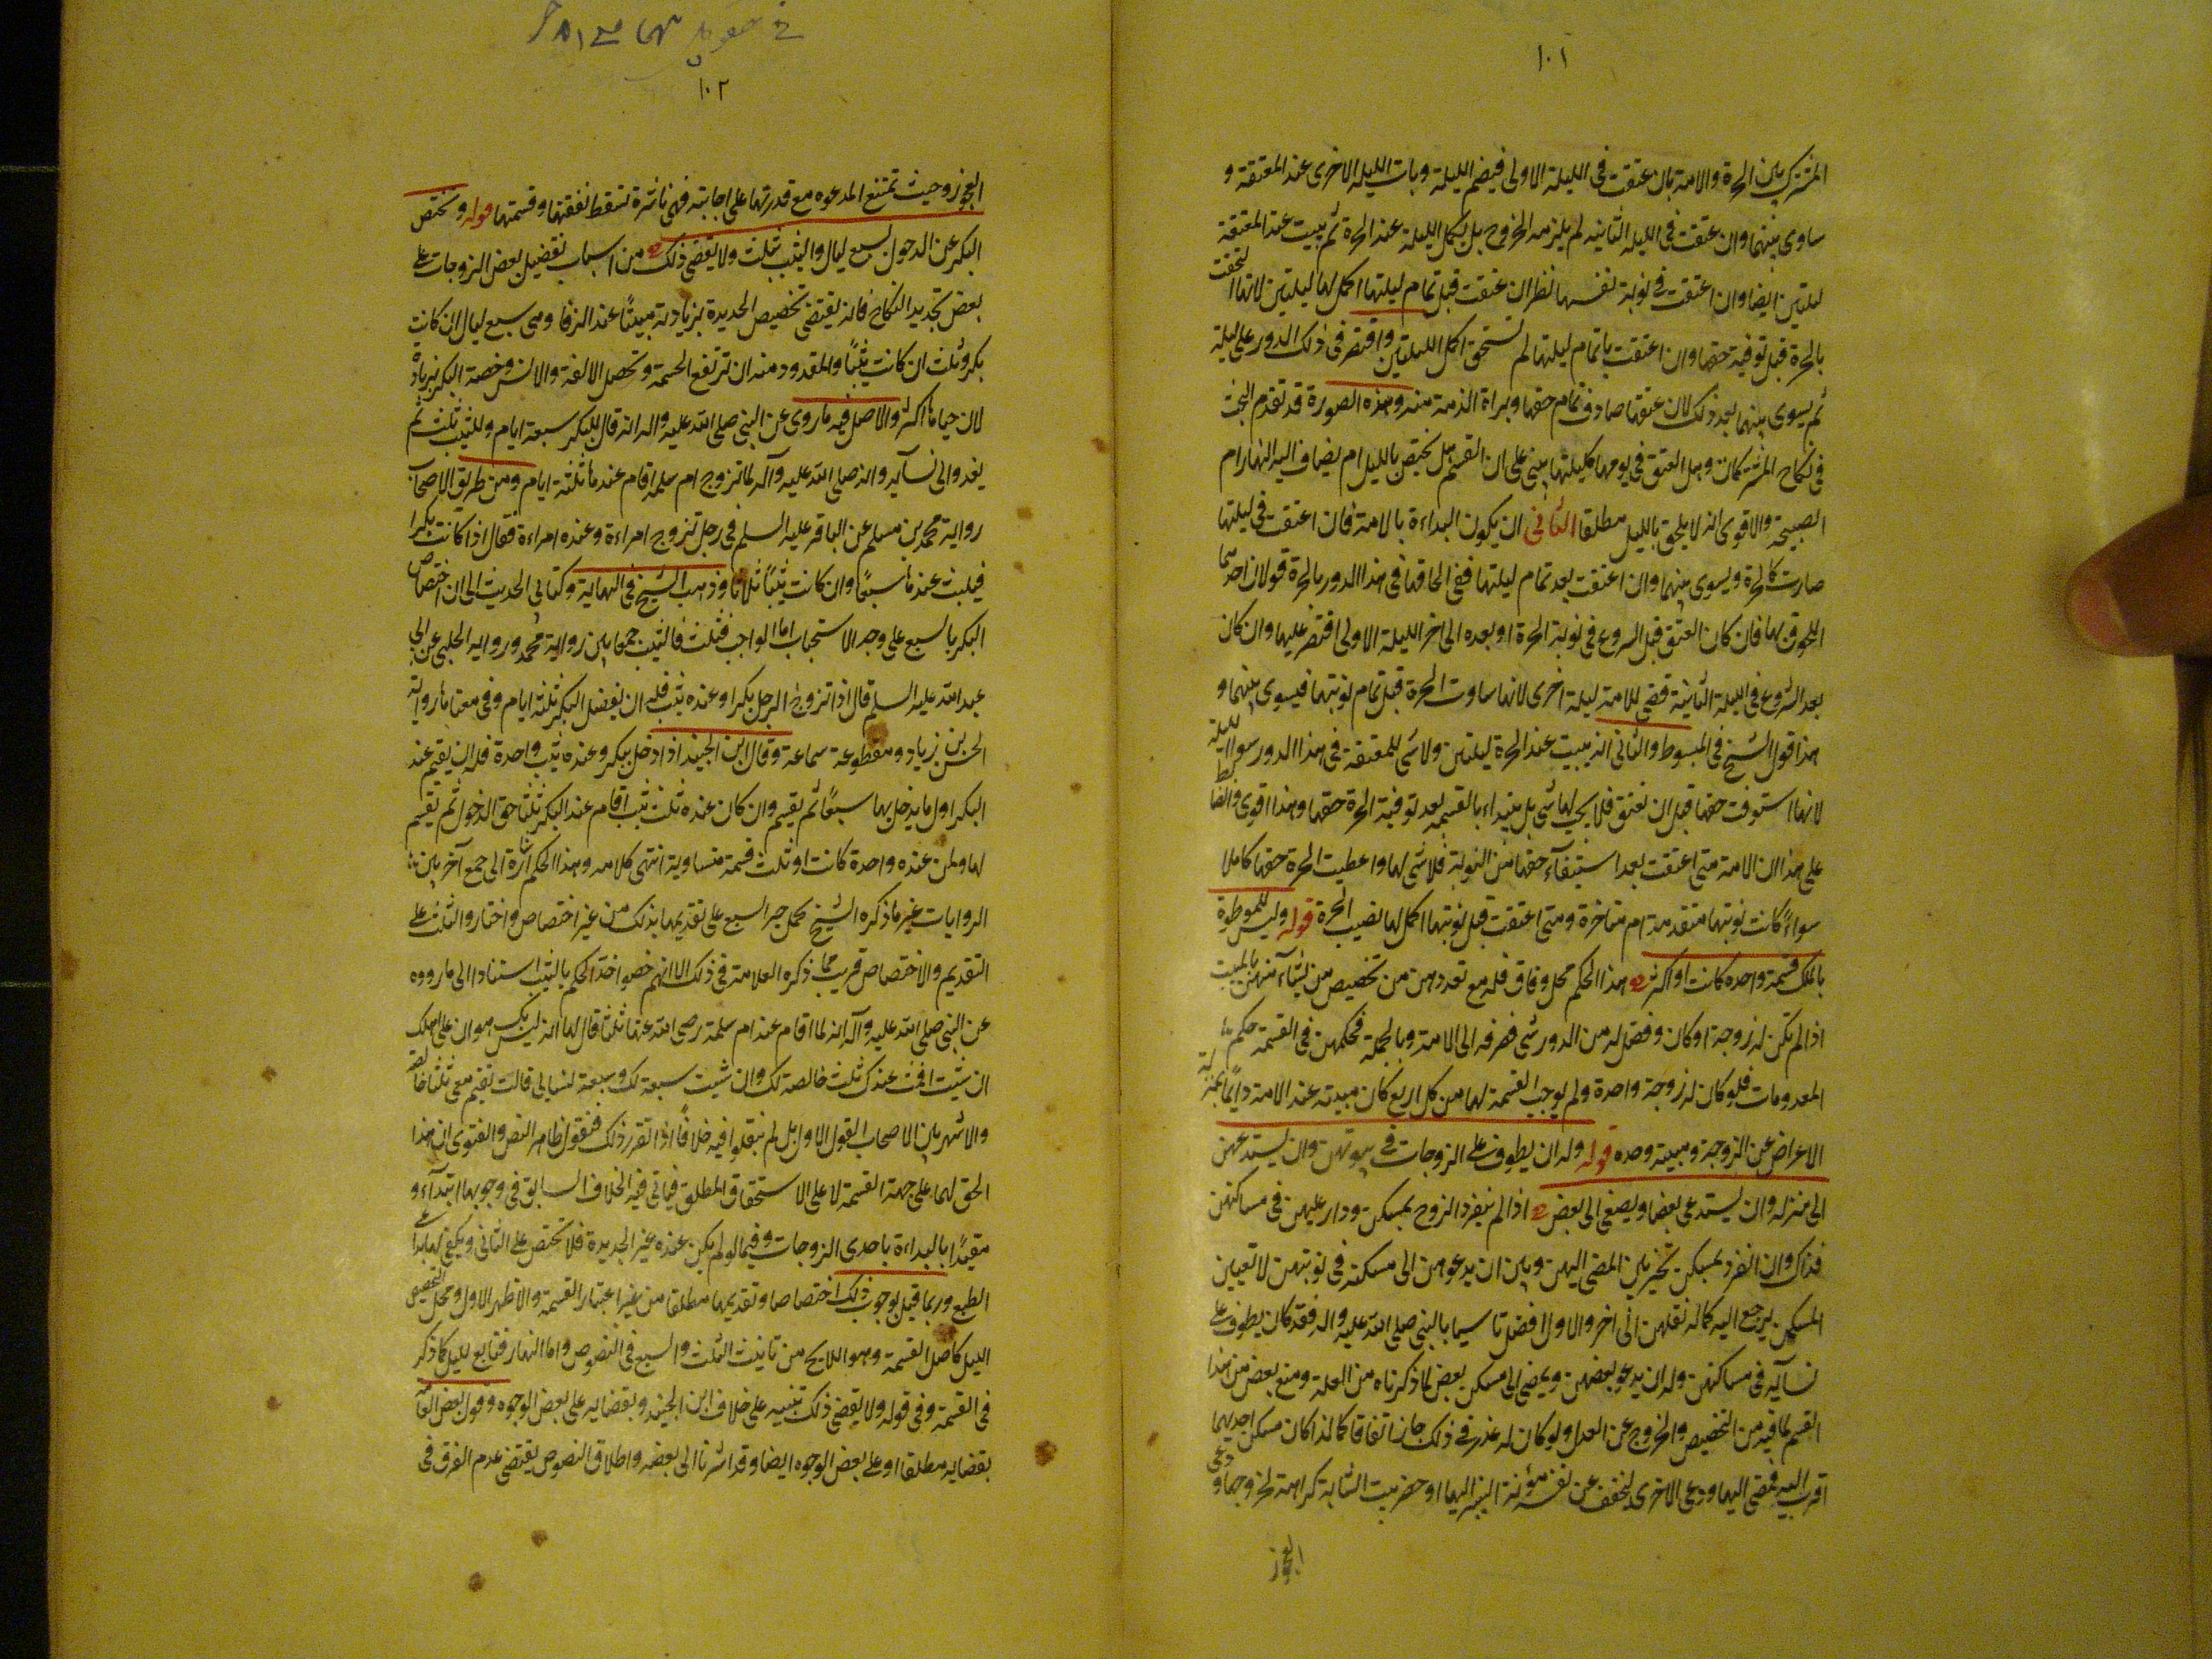 ١٠١
المشترك بين الحرة والامة بان عتقت فى الليلة الاولى فيضم الليلة وبات الليله الاخرى عند المعتقة و
ساوى بينهما وان عتقت فى الليله الثانيه لم يلزمه الخروج بل يكمل الليلة عند الحرة ثم يبيت عند المعتقة
ليلتين ايضا وان اعتقت فى نوبة نفسها نظر ان عتقت قبل تمام ليلتها اكمل لها ليلتين لانها التحقت
بالحرة قبل توفية حقها وان اعتقت باتمام ليلتها لم تستحق اكمل الليلتين واقتصر فى ذلك الدور على ليلة
ثم يسوى بينهما بعد ذلك لان عتقها صادف تمام حقها وبراة الذمة منه وهذه الصورة قد تقدم البحث
فى نكاح المشركات وهل العتق فى يومها كليلتها يبنى على ان القسم هل يختص بالليل ام يضاف اليه النهار ام
الصبيحة والاقوى انه لا يلحق بالليل مطلقا الثانى ان يكون البداءة بالامة فان اعتقت فى ليلتها
صارت كالحرة ويسوى بينهما وان اعتقت بعد تمام ليلتها ففى الحاقها فى هذا الدور بالحرة قولان احدهما
اللحوق بها فان كان العتق قبل الشروع فى نوبة الحرة او بعده الى اخر الليلة الاولى اقتصر عليها وان كان
بعد الشروع فى الليلة الثانية قضى للامة ليلة اخرى لانها ساوت الحرة قبل تمام نوبتها فيسوى بينهما و
هذا قول الشيخ فى المبسوط والثانى انه يبيت عند الحرة ليلتين ولا شى للمعتقة فى هذا الدور سوى الليلة
لانها استوفت حقها قبل ان تعتق فلا يجب لها شى بل يبتداء بالقسمه بعد توفية الحرة حقها وهذا اقوى والضابط
على هذا ان الامة متى اعتقت بعد استيفآء حقها من النوبة فلا شى لها واعطيت الحرة حقها كاملا
سواءً كانت نوبتها متقدمة ام متاخرة ومتى اعتقت قبل نوبتها اكمل لها نصيب الحرة قوله وليس للموطوة
بالملك قسمة واحدة كانت او اكثر هذا الحكم محل وفاق فله مع تعددهن من تخصيص من يشآء منهن بالمبيت
اذا لم تكن له زوجة او كان وفضل له من الدور شى فصرفه الى الامة وبالجملة فحكمهن فى القسمة حكم
المعدومات فلو كان له زوجة واحدة ولم يوجب القسمة لها من كل اربع كان مبيته عند الامة دايمًا بمنزلة
الاعراض عن الزوجة ومبيته وحده قوله وله ان يطوف على الزوجات فى بيوتهن وان يستدعيهن
الى منزله وان يستدعى بعضا ويصغى الى بعض اذا لم ينفرد الزوج بمسكن ودار عليهن فى مساكنهن
فذاك وان انفرد بمسكن تخير بين المضى اليهن وبين ان يدعوهن الى مسكنه فى نوبتهن لا تعيين
المسكن يرجع اليه كما له نقلهن الى اخر والاول افضل تاسيا بالنبى صلى الله عليه واله فقد كان يطوف على
نسآيه فى مساكنهن وله ان يدعو بعضهن ويمضى الى مسكن بعض لما ذكرناه من العله ومنع بعض من هذا
القسم لما فيه من التخصيص والخروج عن العدل ولو كان له عذر فى ذلك جاز اتفاقا كما اذا كان مسكن احديهما
اقرب اليه فمضى اليها ودعى الاخرى ليخفف عن نفسه مؤنة السير اليها او حضر بيت الشابة كراهة لخروجها ودعى
العجوز
١٠٢
العجوز وحيث تمتنع المدعوه مع قدرتها على اجابته فهى ناشزة تسقط نفقتها وقسمتها قوله وتختص
البكر عن الدخول بسبع ليال والثيب بثلث ولا يقضى ذلك من اسباب تفضيل بعض الزوجات على
بعض تجديد النكاح فانه يقتضى تخصيص الجديدة بزيادة مبيتًا عند الزفا وهى سبع ليال ان كانت
بكر وثلث ان كانت ثيبًا والمقصود منه ان ترتفع الحشمة وتحصل الالفة والانس وخصة البكر بزيادة
لان حياها اكثر والاصل فيه ما روى عن النبى صلى الله عليه واله انه قال للبكر سبعة ايام وللثيب ثلث ثم
يغدو الى نسآيه وانه صلى الله عليه وآله لما تزوج ام سلمه اقام عندها ثلثة ايام ومن طريق الاصحاب
رواية محمد بن مسلم عن الباقر عليه السلم فى رجل تزوج امراءة وعنده امراءة فقال اذا كانت بكرا
فيلبث عندها سبعًا وان كانت ثيبًا ثلاثا وذهب الشيخ فى النهاية وكتابى الحديث الى ان اختصاص
البكر بالسبع على وجه الاستحباب اما الواجب فثلث فالثيب جمعا بين رواية محمد ورواية الحلبى عن ابى
عبد الله عليه السلم قال اذا تزوج الرجل بكرا وعنده ثيب فله ان يفضل البكر ثلثة ايام وفى معناها رواية
الحسن بن زياد ومقطوعة سماعة وقال ابن الجنيد اذا دخل ببكر وعنده ثيب واحدة فله ان يقيم عند
البكر اول ما يدخل بها سبعًا ثم يقسم وان كان عنده ثلث ثيب اقام عند البكر ثلثا حق الدخول ثم يقسم
لها ولمن عنده واحدة كانت او ثلث قسمة متساوية انتهى كلامه وهذا الحكم اشارة الى جمع آخر بين
الروايات غير ما ذكره الشيخ بحمل خبر السبع على تقديمها بذلك من غير اختصاص واختار والثلث على
التقديم والاختصاص قريب مما ذكره العلامة فى ذلك الا انهم خصوا هذا الحكم بالثيب استنادا الى ما رووه
عن النبى صلى الله عليه وآله انه لما اقام عند ام سلمة رضى الله عنها ثلثا قال لها انه ليس بك هوان على اهلك
ان شيت اقمت عندك ثلث خالصة لك وان شيت سبعة لك وسبعة لنسايى قالت تقيم معى ثلثا خالصة
والاشهر بين الاصحاب القول الاول بل لم ينقلوا فيه خلافًا اذا تقرر ذلك فنقول ظاهر النص والفتوى ان هذا
الحق لها على جهة القسمة لا على الاستحقاق المطلق فياتى فيه الخلاف السابق فى وجوبها ابتدآء و
مقيدًا بالبداءة باحدى الزوجات وفيما لو لم يكن عنده غير الجديدة فلا تختص على الثانى
الطبع وربما قيل بوجوب ذلك اختصاصا وتقديمها مطلقا من غير اعتبار القسمة والاظهر الاول ومحل التخصيص
الليل كاصل القسمة وهو اللايح من تانيث الثلث والسبع فى النصوص واما النهار فتابع لليل كما ذكر
فى القسمة وفى قوله ولا يقضى ذلك تنبيه على خلاف ابن الجنيد وبقضايه على بعض الوجوه وقول بعض العامة
بقضايه مطلقا او على بعض الوجوه ايضا وقد اشرنا الى بعضه واطلاق النصوص يقتضى عدم الفرق فى